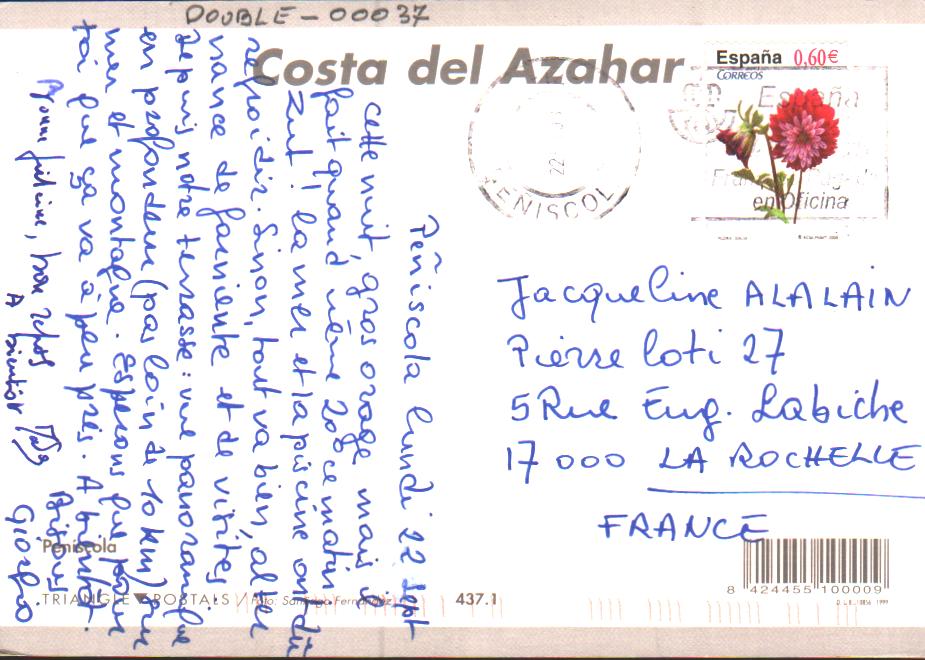 DOUBLE - 00037
Costa del Azahar
España 0,60€
CORREOS
22
PEÑISCOL
España
en Oficina
Peñiscola lundi 22 sept
Cette nuit, gros orage mais il
fait quand même 20° ce matin.
Zut! la mer et la piscine ont dû
refroidir. Sinon, tout va bien, alter
nance de farniente et de visites
depuis notre terrasse : vue panoramique
en profondeur (pas loin de 10 km) sur
mer et montagne. Espérons que pour
toi que ça va à peu près. A bientôt.
Bisous
Giorgio
bon repos
A bientôt
Jacqueline ALALAIN
Pierre Loti 27
5 Rue Eug. Labiche
17000 LA ROCHELLE
FRANCE
Peñiscola
TRIANGLE POSTALS / Foto: Santiago Fernández
437.1
8 424455 100009
D.L.B. 1999